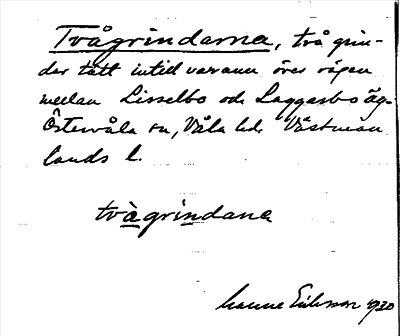 Tvågrindarna, två grin-
dar tätt intill varann över vägen
mellan Lisselbo och Laggarbo äg.
Östervåla sn, Våla hd. Västman
lands l.
tvågrindana
Hanna Eriksson 1930